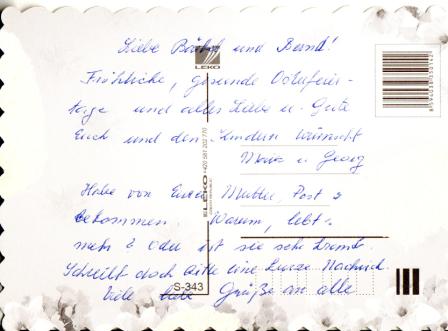 Liebe Bärbel und Bernd!
LEKO
Fröhliche, gesunde Osterfeier-
tage und alles Liebe u. Gute
Euch und den Kindern wünscht
u. Georg
Habe von Eurer Mutter, Post
bekommen. Warum, lebt
mehr? Oder ist sie sehr krank.
Schreibt doch bitte eine kurze Nachricht.
Viele liebe Grüße an alle
S-343
ELEKO
+420 581 202 770